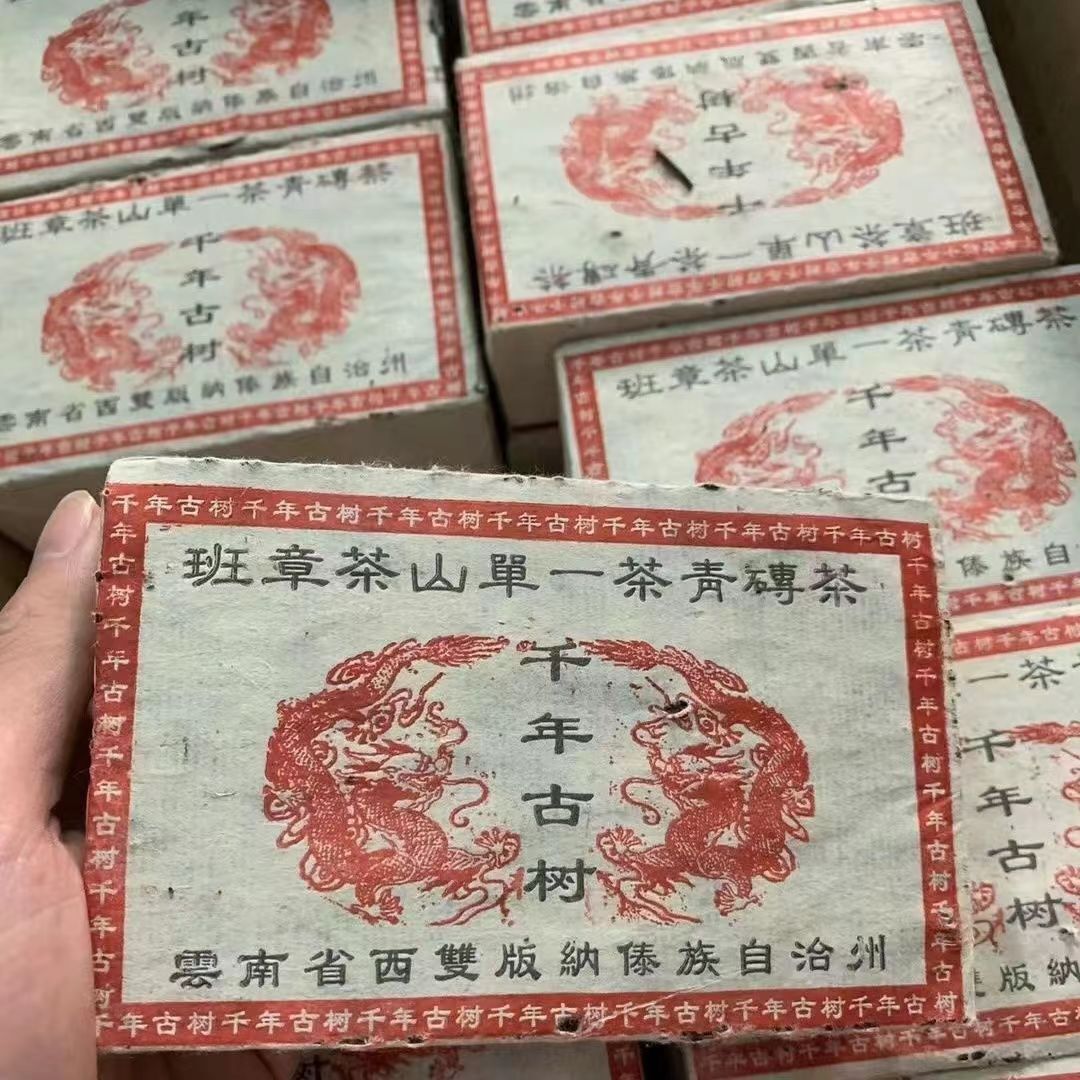 千年古树
雲南省西雙版納傣族自治州
雲南省西雙版納傣族自治州
千年古树
班章茶山單一茶青磚茶
班章茶山單一茶青磚茶
千年古树
雲南省西雙版納傣族自治州
班章茶山單一茶青磚茶
千年古
傣族自
千年古树千年古树千年古树千年古树千年古树千年古树千年古树
班章茶山單一茶青磚茶
千年古树
雲南省西雙版納傣族自治州
千年古树千年古树千年古树千年古树千年古树千年古树千年古树
千年古树千年古树千年古树千年古树
千年古树千年古树千年古树千年古树
一茶
千年古树
版納